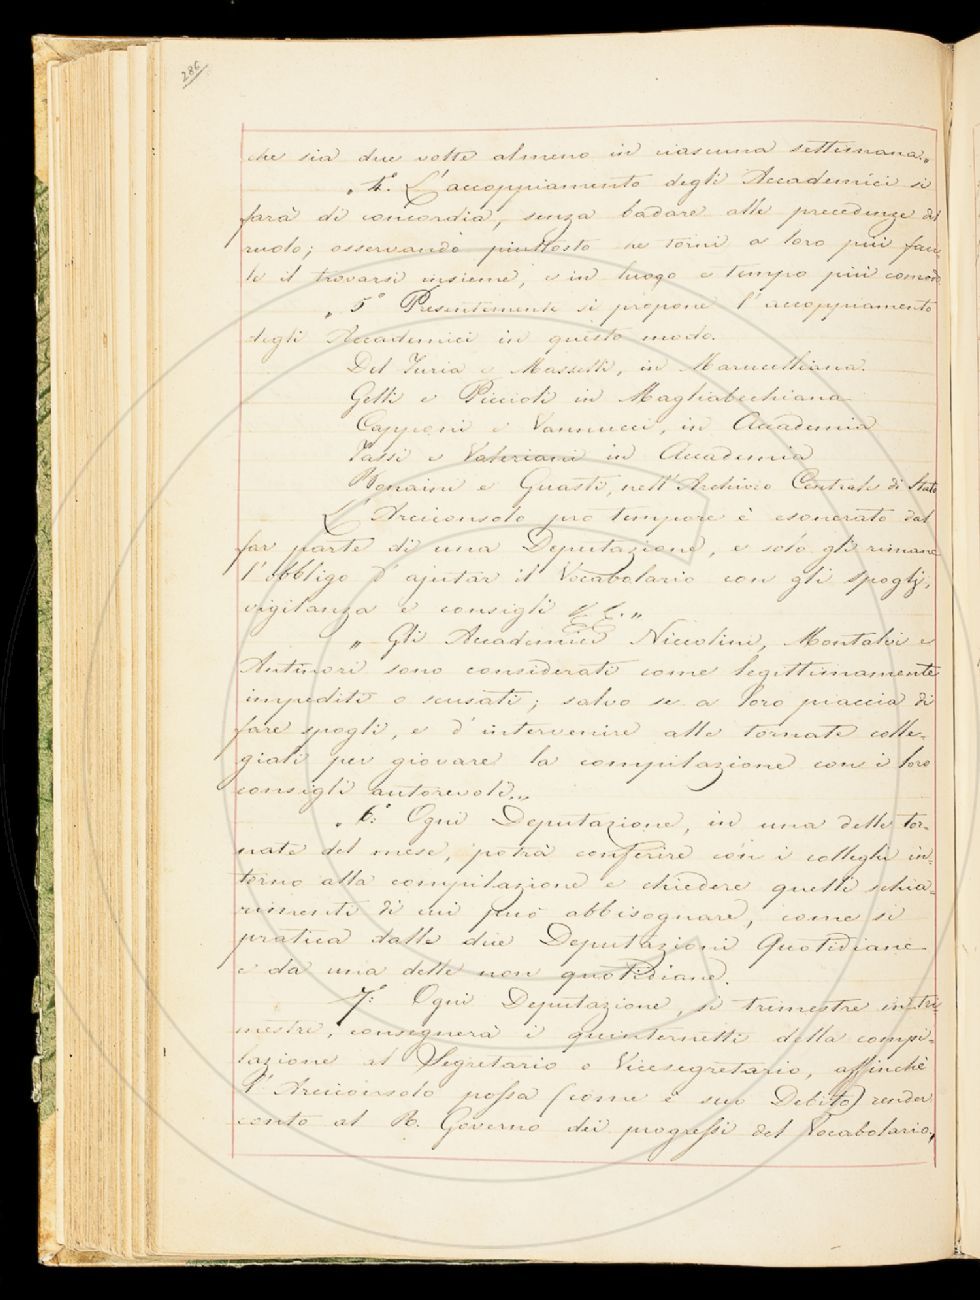 286
che sia due volte almeno in ciascuna settimana „
„ 4.° L'accoppiamento degli Accademici si
farà di concordia, senza badare alle precedenze del
ruolo; osservando piuttosto se torni a loro più faci-
le il trovarsi insieme, e in luogo e tempo più comodo
„ 5° Presentemente si propone l'accoppiamento
degli Accademici in questo modo.
Del Furia e Masselli, in Marucelliana.
Gelli e Piccioli in Magliabechiana
Capponi e Vannucci, in Accademia
Tassi e Valeriani in Accademia
Bonaini e Guasti, nell'Archivio Centrale di Stato
L'Arciconsolo pro tempore è esonerato dal
far parte di una Deputazione, e solo gli rimane
l'obbligo d'ajutar il Vocabolario con gli spoglj,
vigilanza e consigli „
„ Gli Accademici Niccolini, Montalvi e
Antinori sono considerati come legittimamente
impediti o scusati; salvo se a loro piaccia di
fare spogli, e d'intervenire alle tornate colle-
giali per giovare la compilazione con i loro
consigli autorevoli „
„ 6.° Ogni Deputazione, in una delle tor-
nate del mese, potrà conferire con i colleghi in-
torno alla compilazione e chiedere quelli schia-
rimenti di cui può abbisognare, come si
pratica dalle due Deputazioni Quotidiane
e da una delle non quotidiane.
7.° Ogni Deputazione, di trimestre in tri-
mestre, consegnerà i quinternetti della compi-
lazione al Segretario o Vicesegretario, affinchè
l'Arciconsolo possa (come è suo Debito) render
conto al R. Governo dei progressi del Vocabolario,